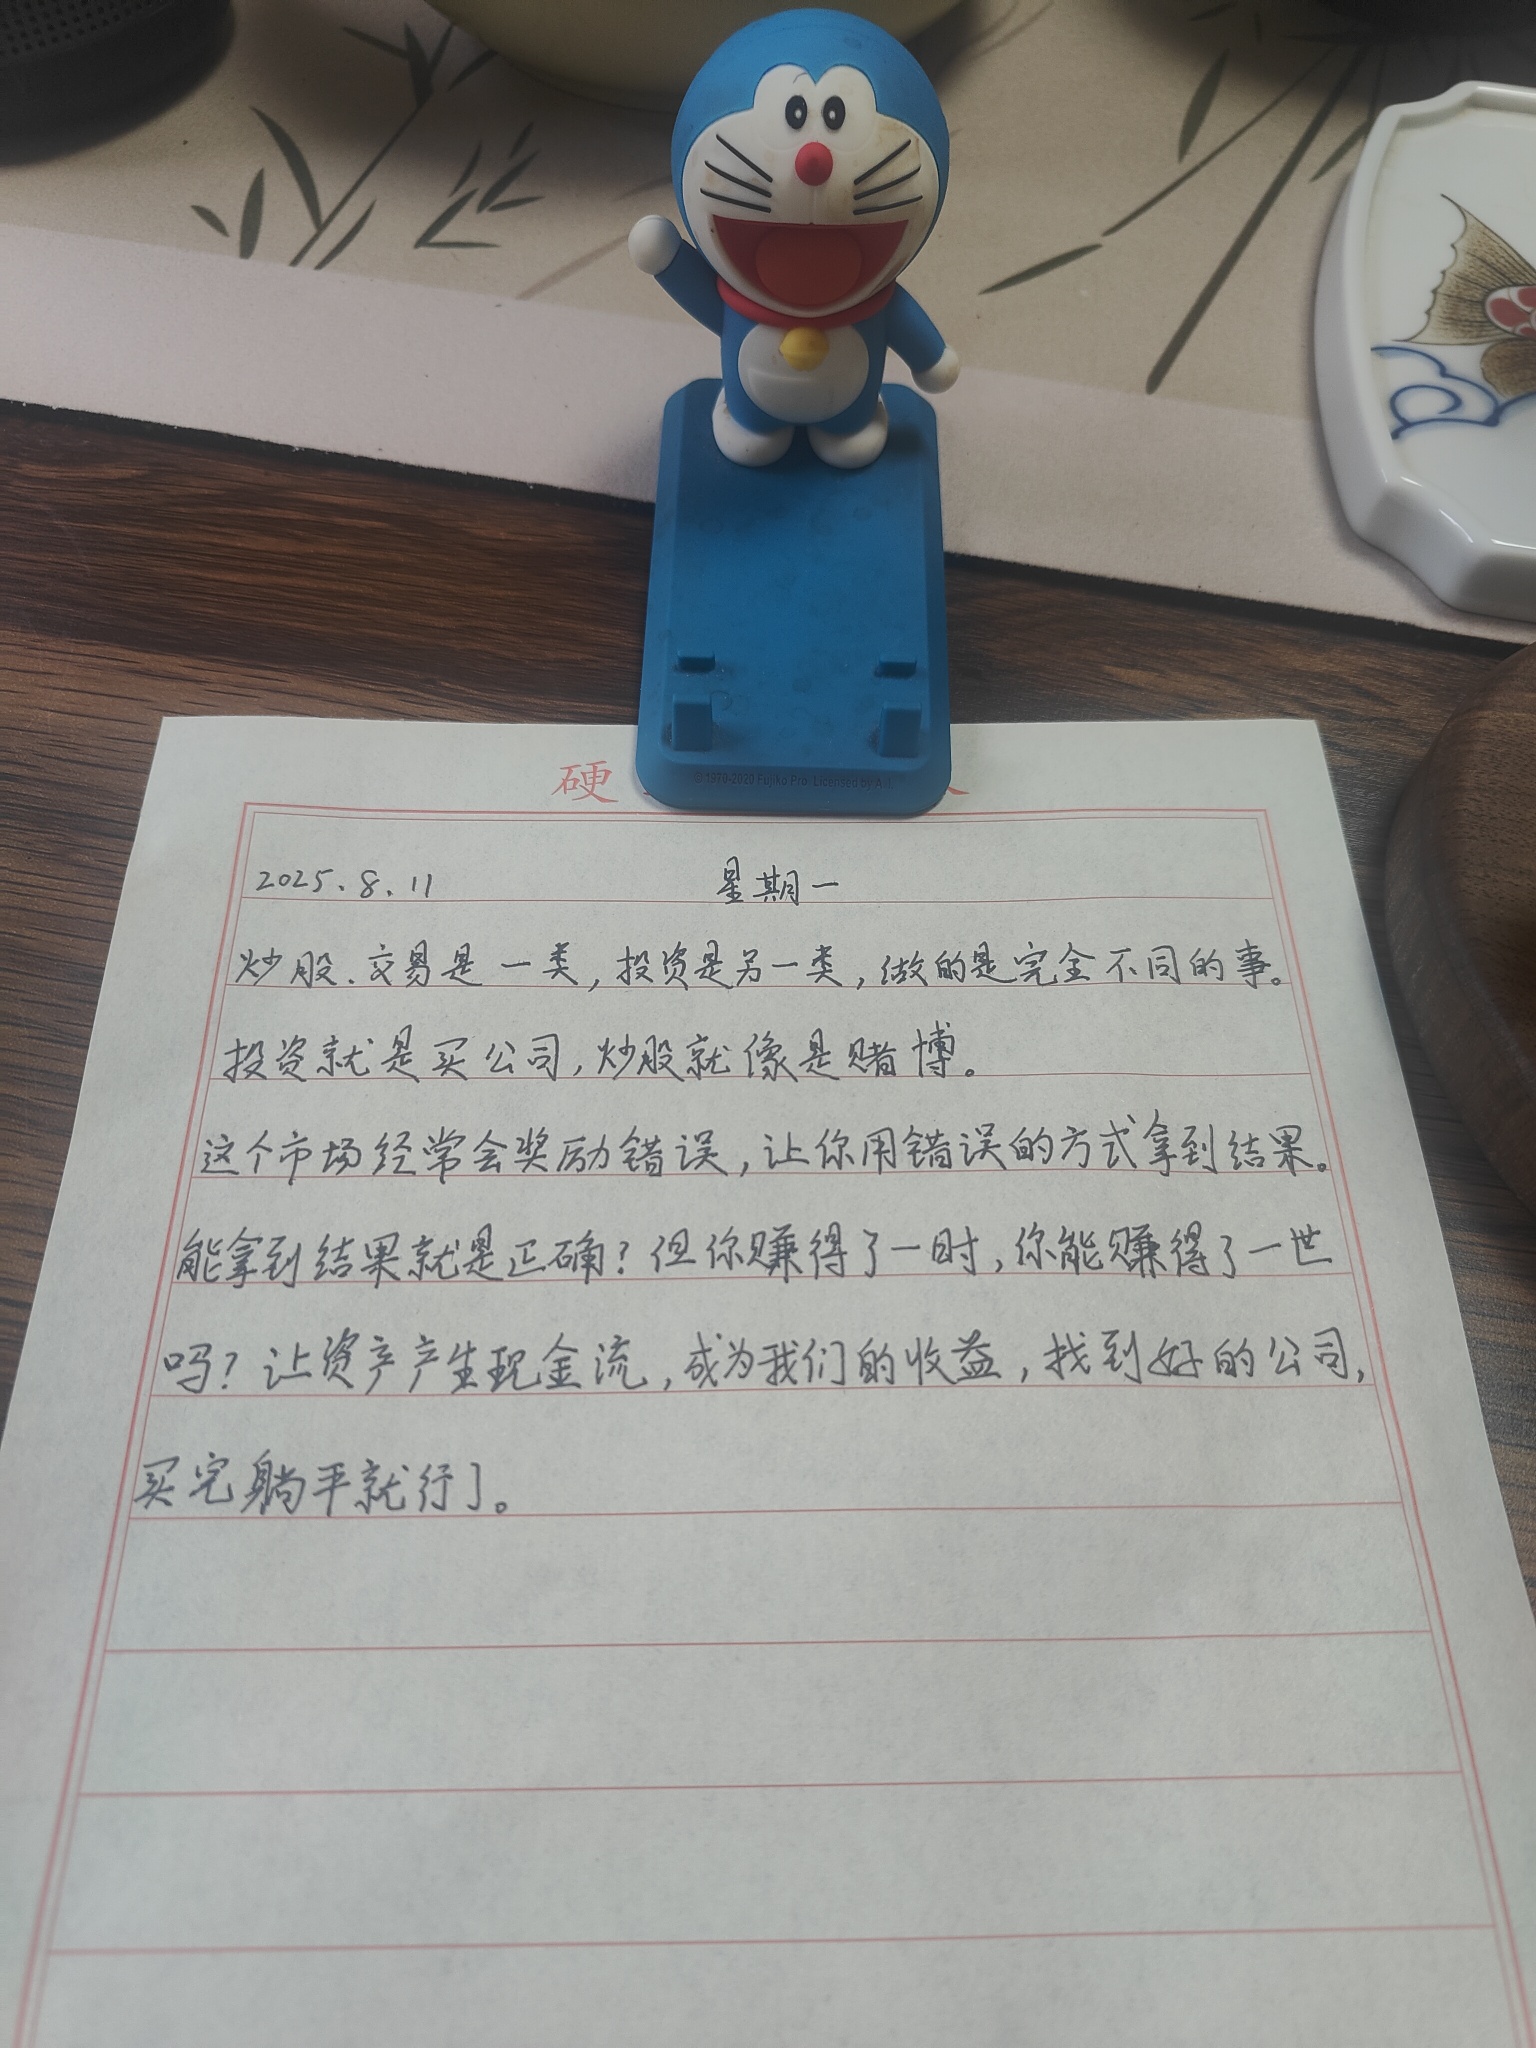 硬
© 1970-2020 Fujiko Pro. Licensed by
2025.8.11 星期一
炒股、交易是一类,投资是另一类,做的是完全不同的事。
投资就是买公司,炒股就像是赌博。
这个市场经常会奖励错误,让你用错误的方式拿到结果。
能拿到结果就是正确?但你赚得了一时,你能赚得了一世
吗?让资产产生现金流,成为我们的收益,找到好的公司,
买完躺平就行了。